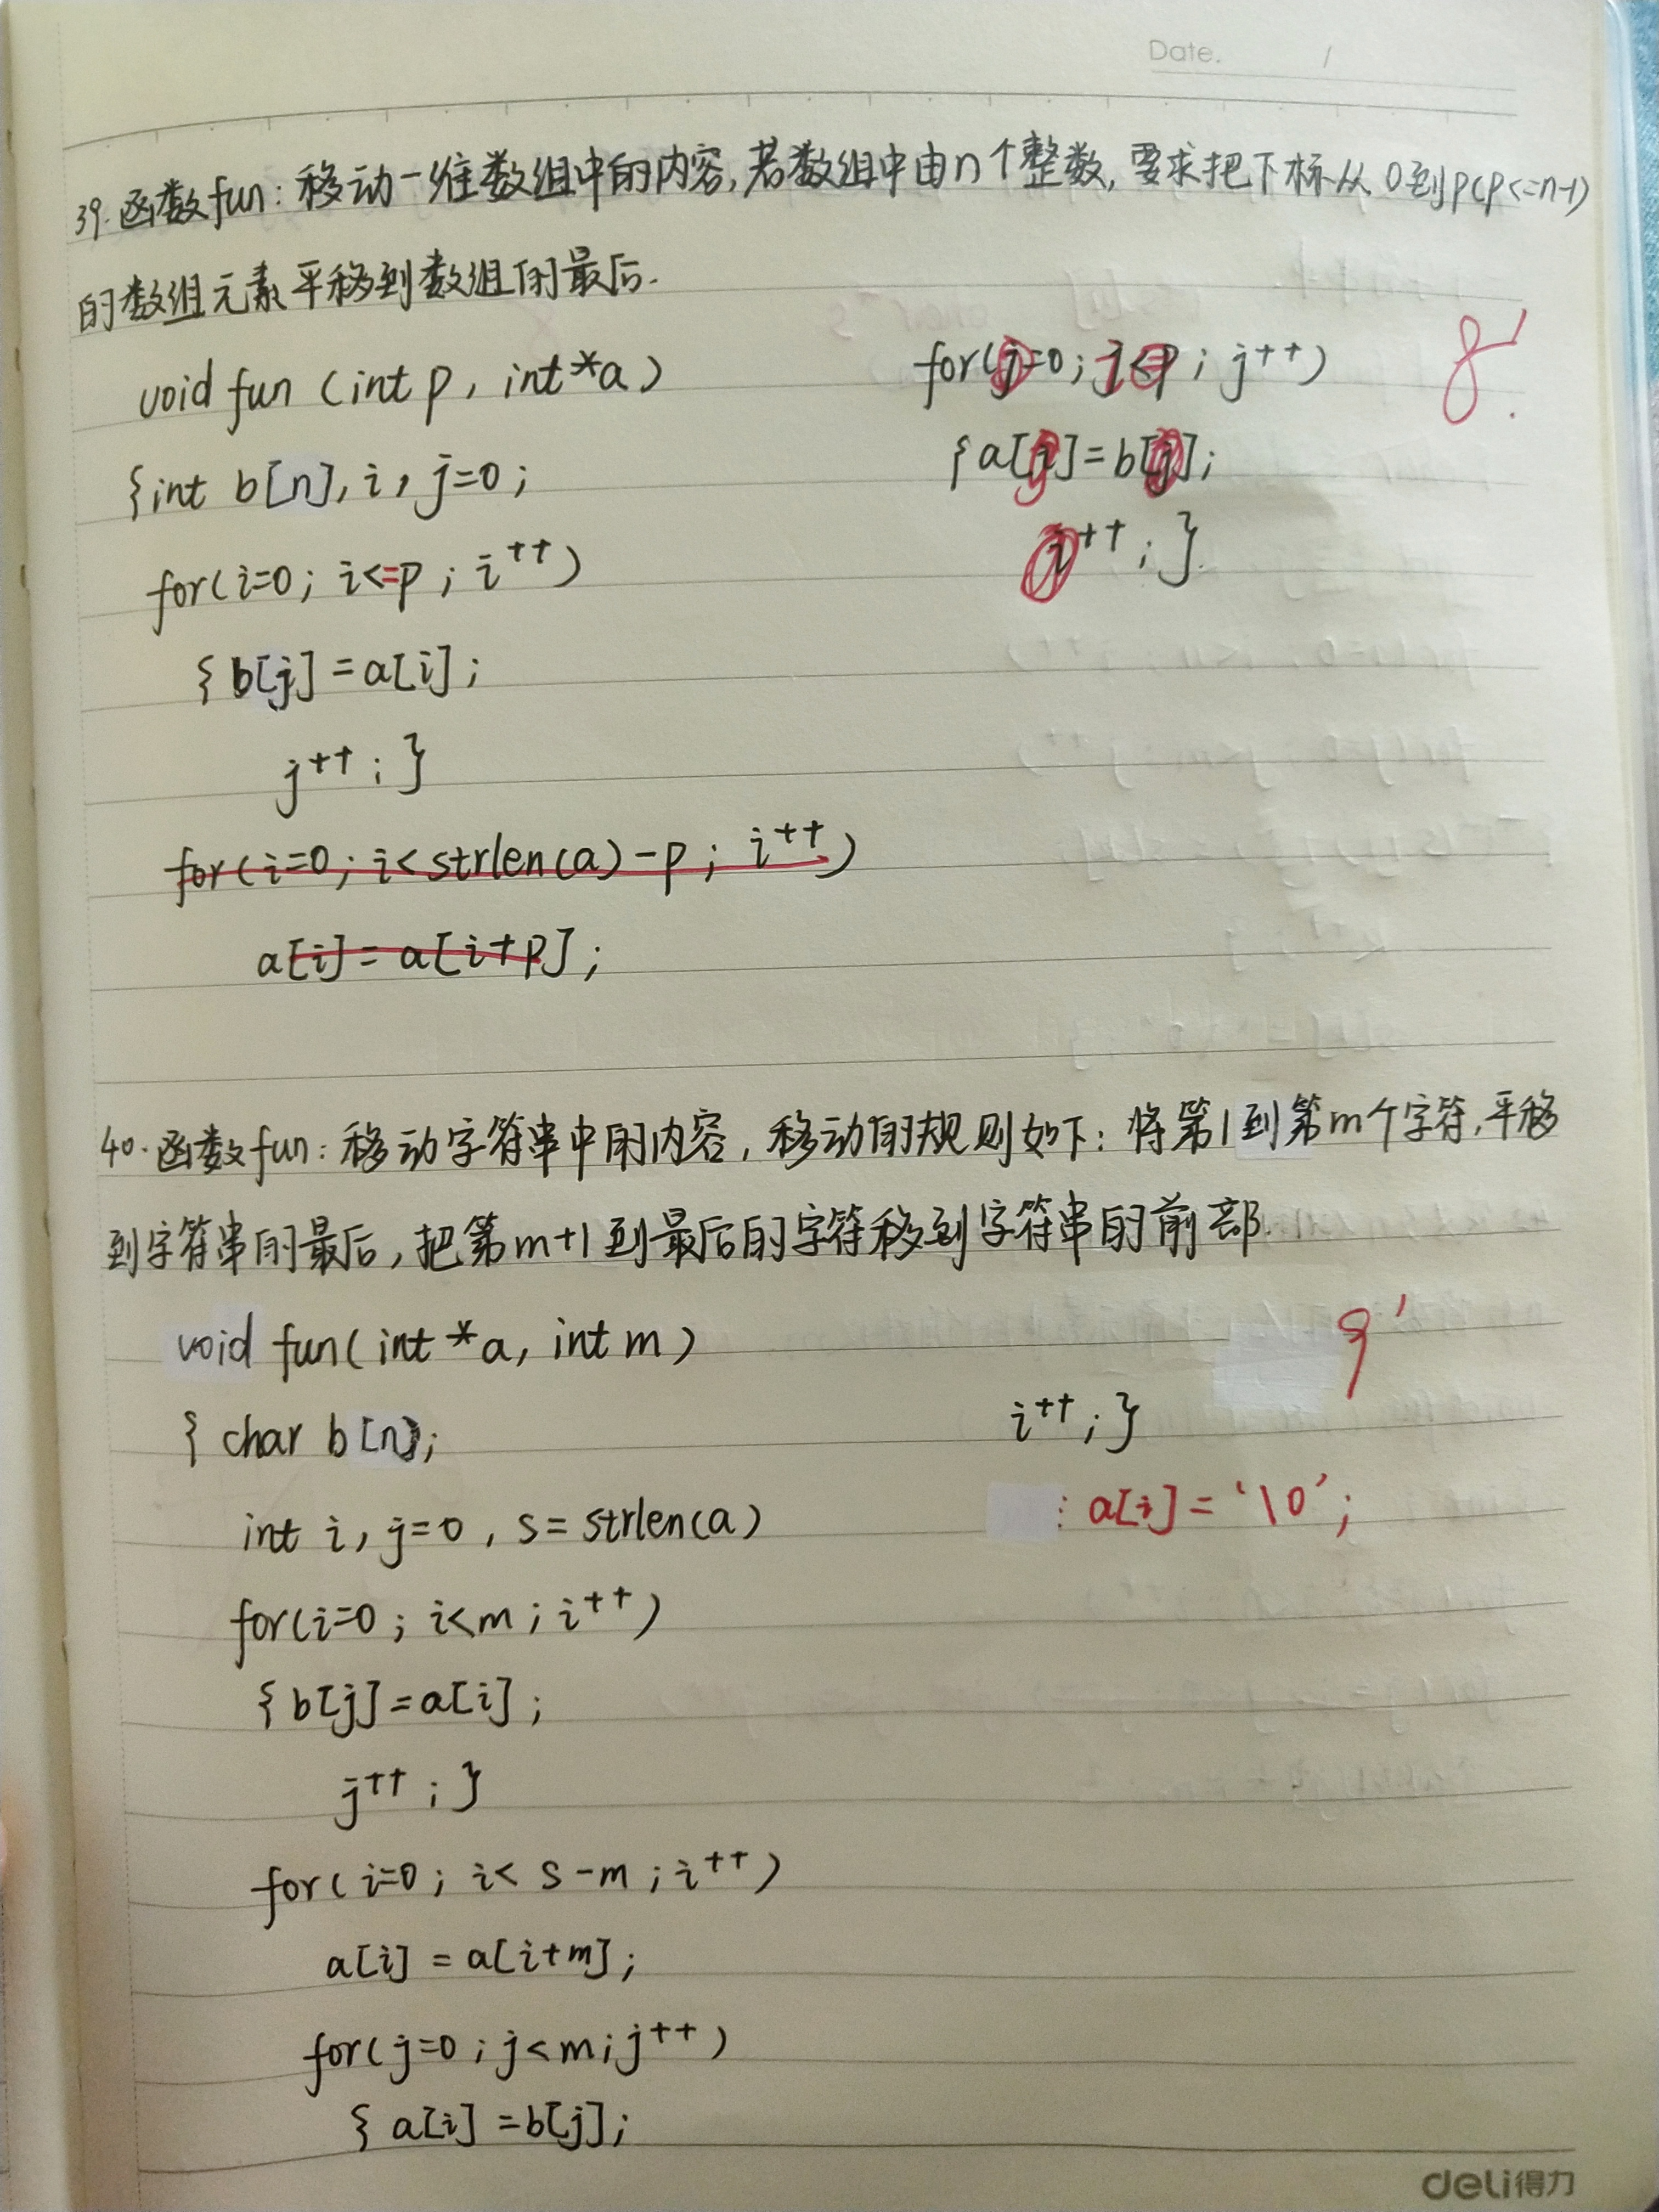 Date. /
39. 函数fun: 移动一维数组中的内容, 若数组中由n个整数, 要求把下标从0到p(p<=n-1)
的数组元素平移到数组的最后.
void fun (int p, int*a)
{int b[n], i, j=0;
for(i=0; i<=p; i++)
{b[j]=a[i];
j++;}
for(i=0; i<strlen(a)-p; i++)
a[i]=a[i+p];
for(j=0; j<=p; j++)
{a[]=b[j];
i++;}
8'
40. 函数fun: 移动字符串中的内容, 移动的规则如下: 将第1到第m个字符, 平移
到字符串的最后, 把第m+1到最后的字符移到字符串的前部.
void fun(int*a, int m)
{ char b[n];
int i, j=0, s=strlen(a)
for(i=0; i<m; i++)
{b[j]=a[i];
j++;}
for(i=0; i<s-m; i++)
a[i]=a[i+m];
for(j=0; j<m; j++)
{a[i]=b[j];
i++;}
a[i]='\0';
9'
deli得力